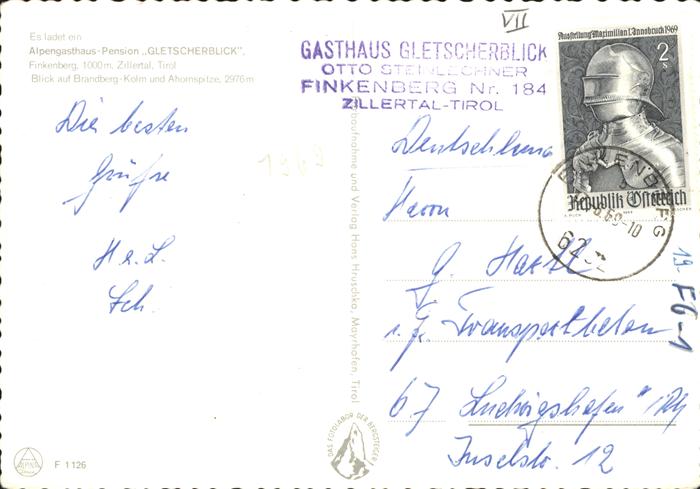 Es ladet ein
Alpengasthaus-Pension „GLETSCHERBLICK".
Finkenberg, 1000 m, Zillertal, Tirol
Blick auf Brandberg-Kolm und Ahornspitze, 2976 m
VII
GASTHAUS GLETSCHERBLICK
OTTO STEINLECHNER
FINKENBERG Nr. 184
ZILLERTAL-TIROL
Ausstellung Maximilian I. Innsbruck 1969
2 S
Republik Österreich
Die besten
Grüße
H. u. L.
Sch.
1969
Deutschland
Herrn
G. Hartl
i. Fa. Transportbeton
67 Ludwigshafen" /Rh
Inselstr. 12
19. F6-1
Farbaufnahme und Verlag Hans Hruschka, Mayrhofen, Tirol
DAS FOTOLABOR DER BERGSTEIGER
F 1126